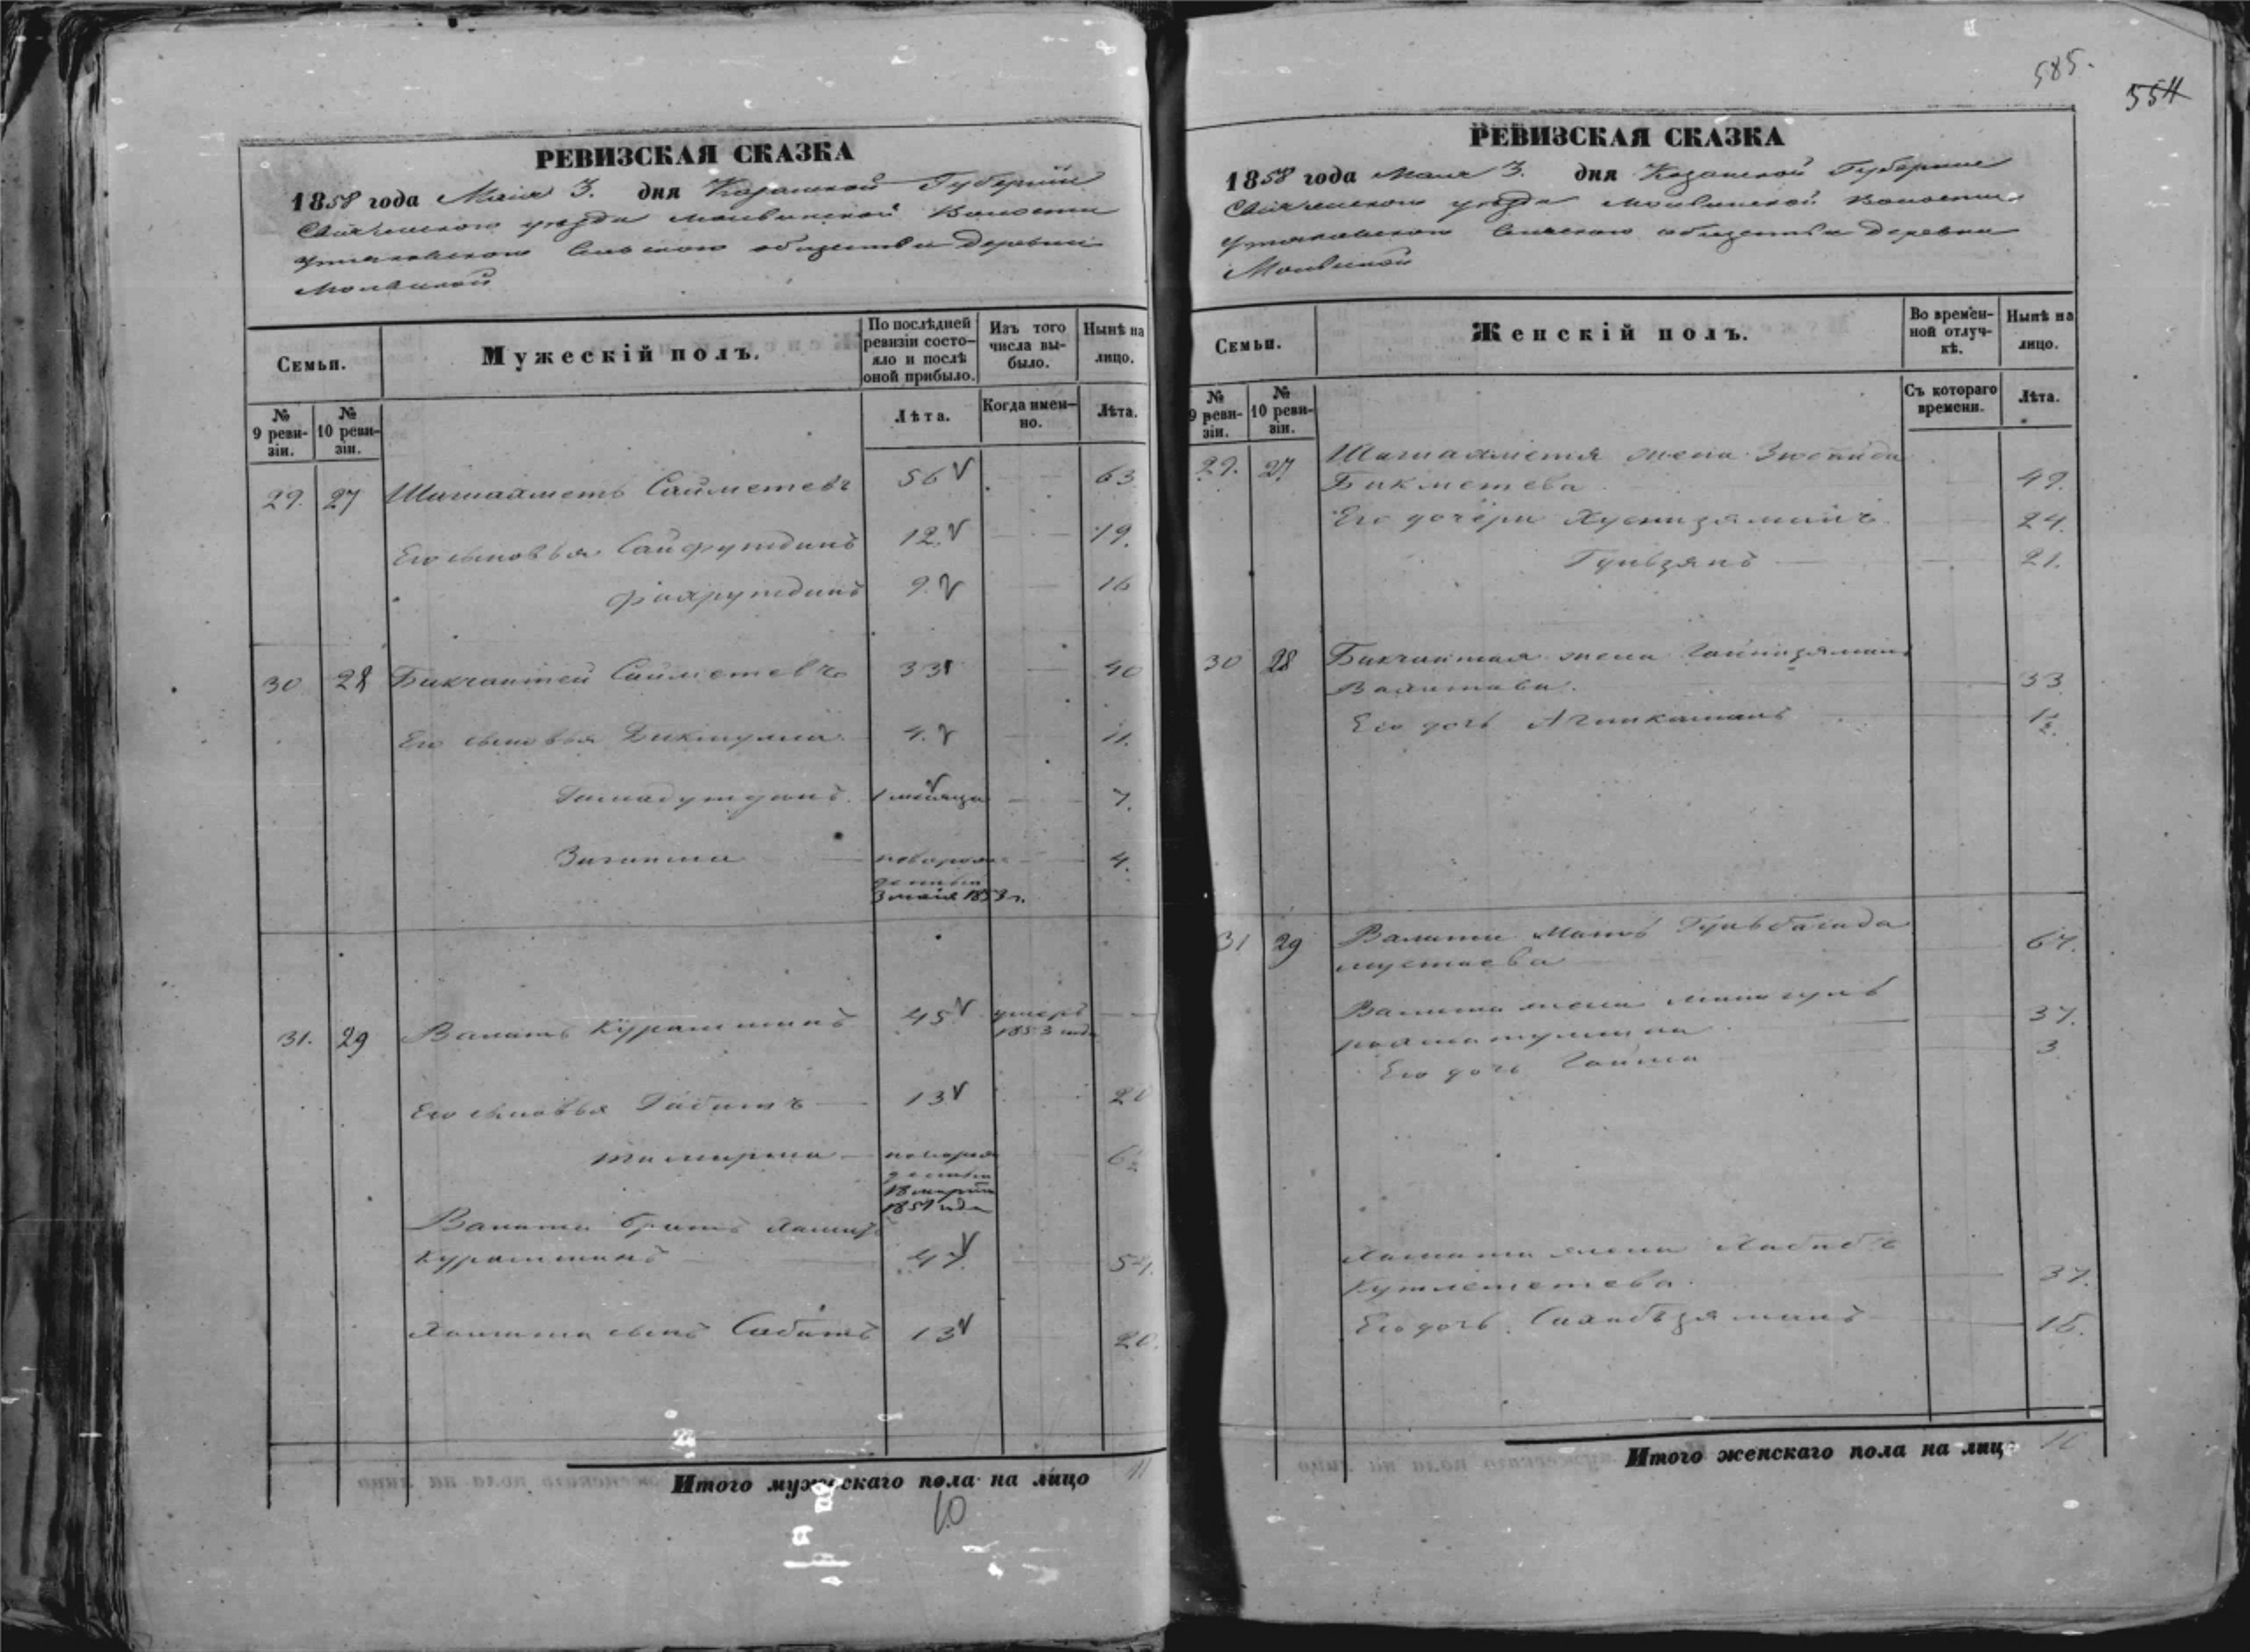 585.
554
РЕВИЗСКАЯ СКАЗКА
1858 года Мая 3. дня Казанской Губернии
Свіяжскаго уезда Молвинской Волости
Утяковскаго Сельскаго общества Деревни
Молвиной
Семьи.
Мужескій полъ.
По послѣдней ревизіи состояло и послѣ оной прибыло.
Изъ того числа выбыло.
Нынѣ на лицо.
№ 9 ревизіи.
№ 10 ревизіи.
Лѣта.
Когда именно.
Лѣта.
29. 27 Шагиахметъ Сайметевъ 56 63
Его сыновья Сайфутдинъ 12. 19.
Фахрутдинъ 9. 16
30 28 Бикчантей Сайметевъ 33 40
Его сыновья 4. 11.
1 месяца 7.
Зиганша новорож- 4.
денный
3 мая 1853 г.
31. 29 Валитъ Курамшинъ 45 умеръ
1853 года
Его сыновья Габитъ 13 20
новорож-
денный
1851 года
Валита братъ Хамитъ
Курамшинъ 47. 54.
Хамита сынъ Сабитъ 13 20.
Итого мужескаго пола на лицо 11
10
РЕВИЗСКАЯ СКАЗКА
1858 года Мая 3. дня Казанской Губернии
Свіяжскаго уезда Молвинской Волости
Утяковскаго Сельскаго общества Деревни
Молвиной
Семьи.
Женскій полъ.
Во временной отлучкѣ.
Нынѣ на лицо.
№ 9 ревизіи.
№ 10 ревизіи.
Съ котораго времени.
Лѣта.
29. 27 Шагиахметя жена
Бикметева 49.
Его дочери Хуснизямалъ 24.
Гульзянъ 21.
30 28 Бикчантая жена Гайнизямалъ
Валитова. 33.
Его дочь 1½.
31 29 Валита мать Гульбагида
Мустаева 67.
Валита жена Минигуль
Рахматуллина 37.
Его дочь 3
Хамита жена Хабиба
Кутлеметева. 37.
Его дочь Сахабзямалъ 15.
Итого женскаго пола на лицо 10